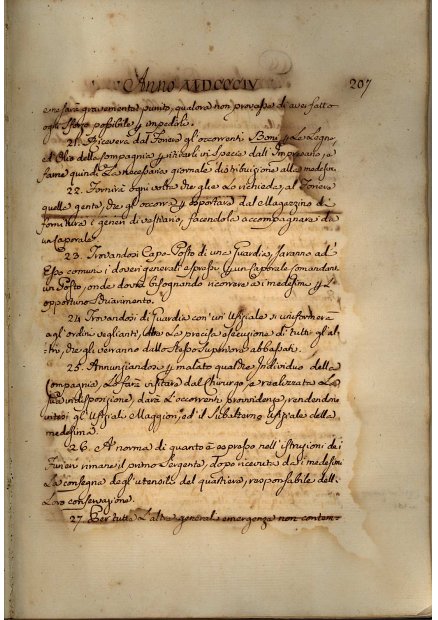 Anno MDCCCIV 207
ne sarà gravemente punito, qualora non provasse di aver fatto
ogni sforzo possibile p impedirli.
21. Riceverà dal Foriere gl'occorrenti Boni p Le Legne,
ed Olio della Compagnia p ritirarli in Specie dall'Impresario, e
farne quindi La necessaria giornale distribuzione alla medesim.
22. Fornirà ogni volta che glie Lo richieda, al Foriere
quella gente, che gl'occorre p asportare dal Magazzino di
fornitura i generi di vestiario, facendola accompagnare da
un Caporale.
23. Trovandosi Capo-Posto di una Guardia, saranno ad
Esso comuni i doveri generali espressi p un Caporale comandante
un Posto, onde dovrà bisognando ricorrere a i medesimi p L'
opportuno Schiarimento.
24. Trovandosi di Guardia con un Uffiziale si uniformerà
agl'ordini veglianti, oltre La precisa esecuzione di tutti gl'al-
tri, che gli verranno dallo Stesso Superiore abbassati.
25. Annunziandosi p malato qualche Individuo della
Compagnia, Lo farà visitare dal Chirurgo, e realizzata La
Sua indisposizione, darà L'occorrenti provvidenze, rendendone
intesi gl'Uffiziali Maggiori, ed il Subalterno Uffiziale della
medesima.
26. A norma di quanto è espresso nell'istruzioni dei
Forieri rimane il primo Sergente, dopo ricevuta da i medesimi
La consegna degl'utensili del quartiere, responsabile della
Loro conservazione.
27. Per tutte L'altre generali emergenze non contem-